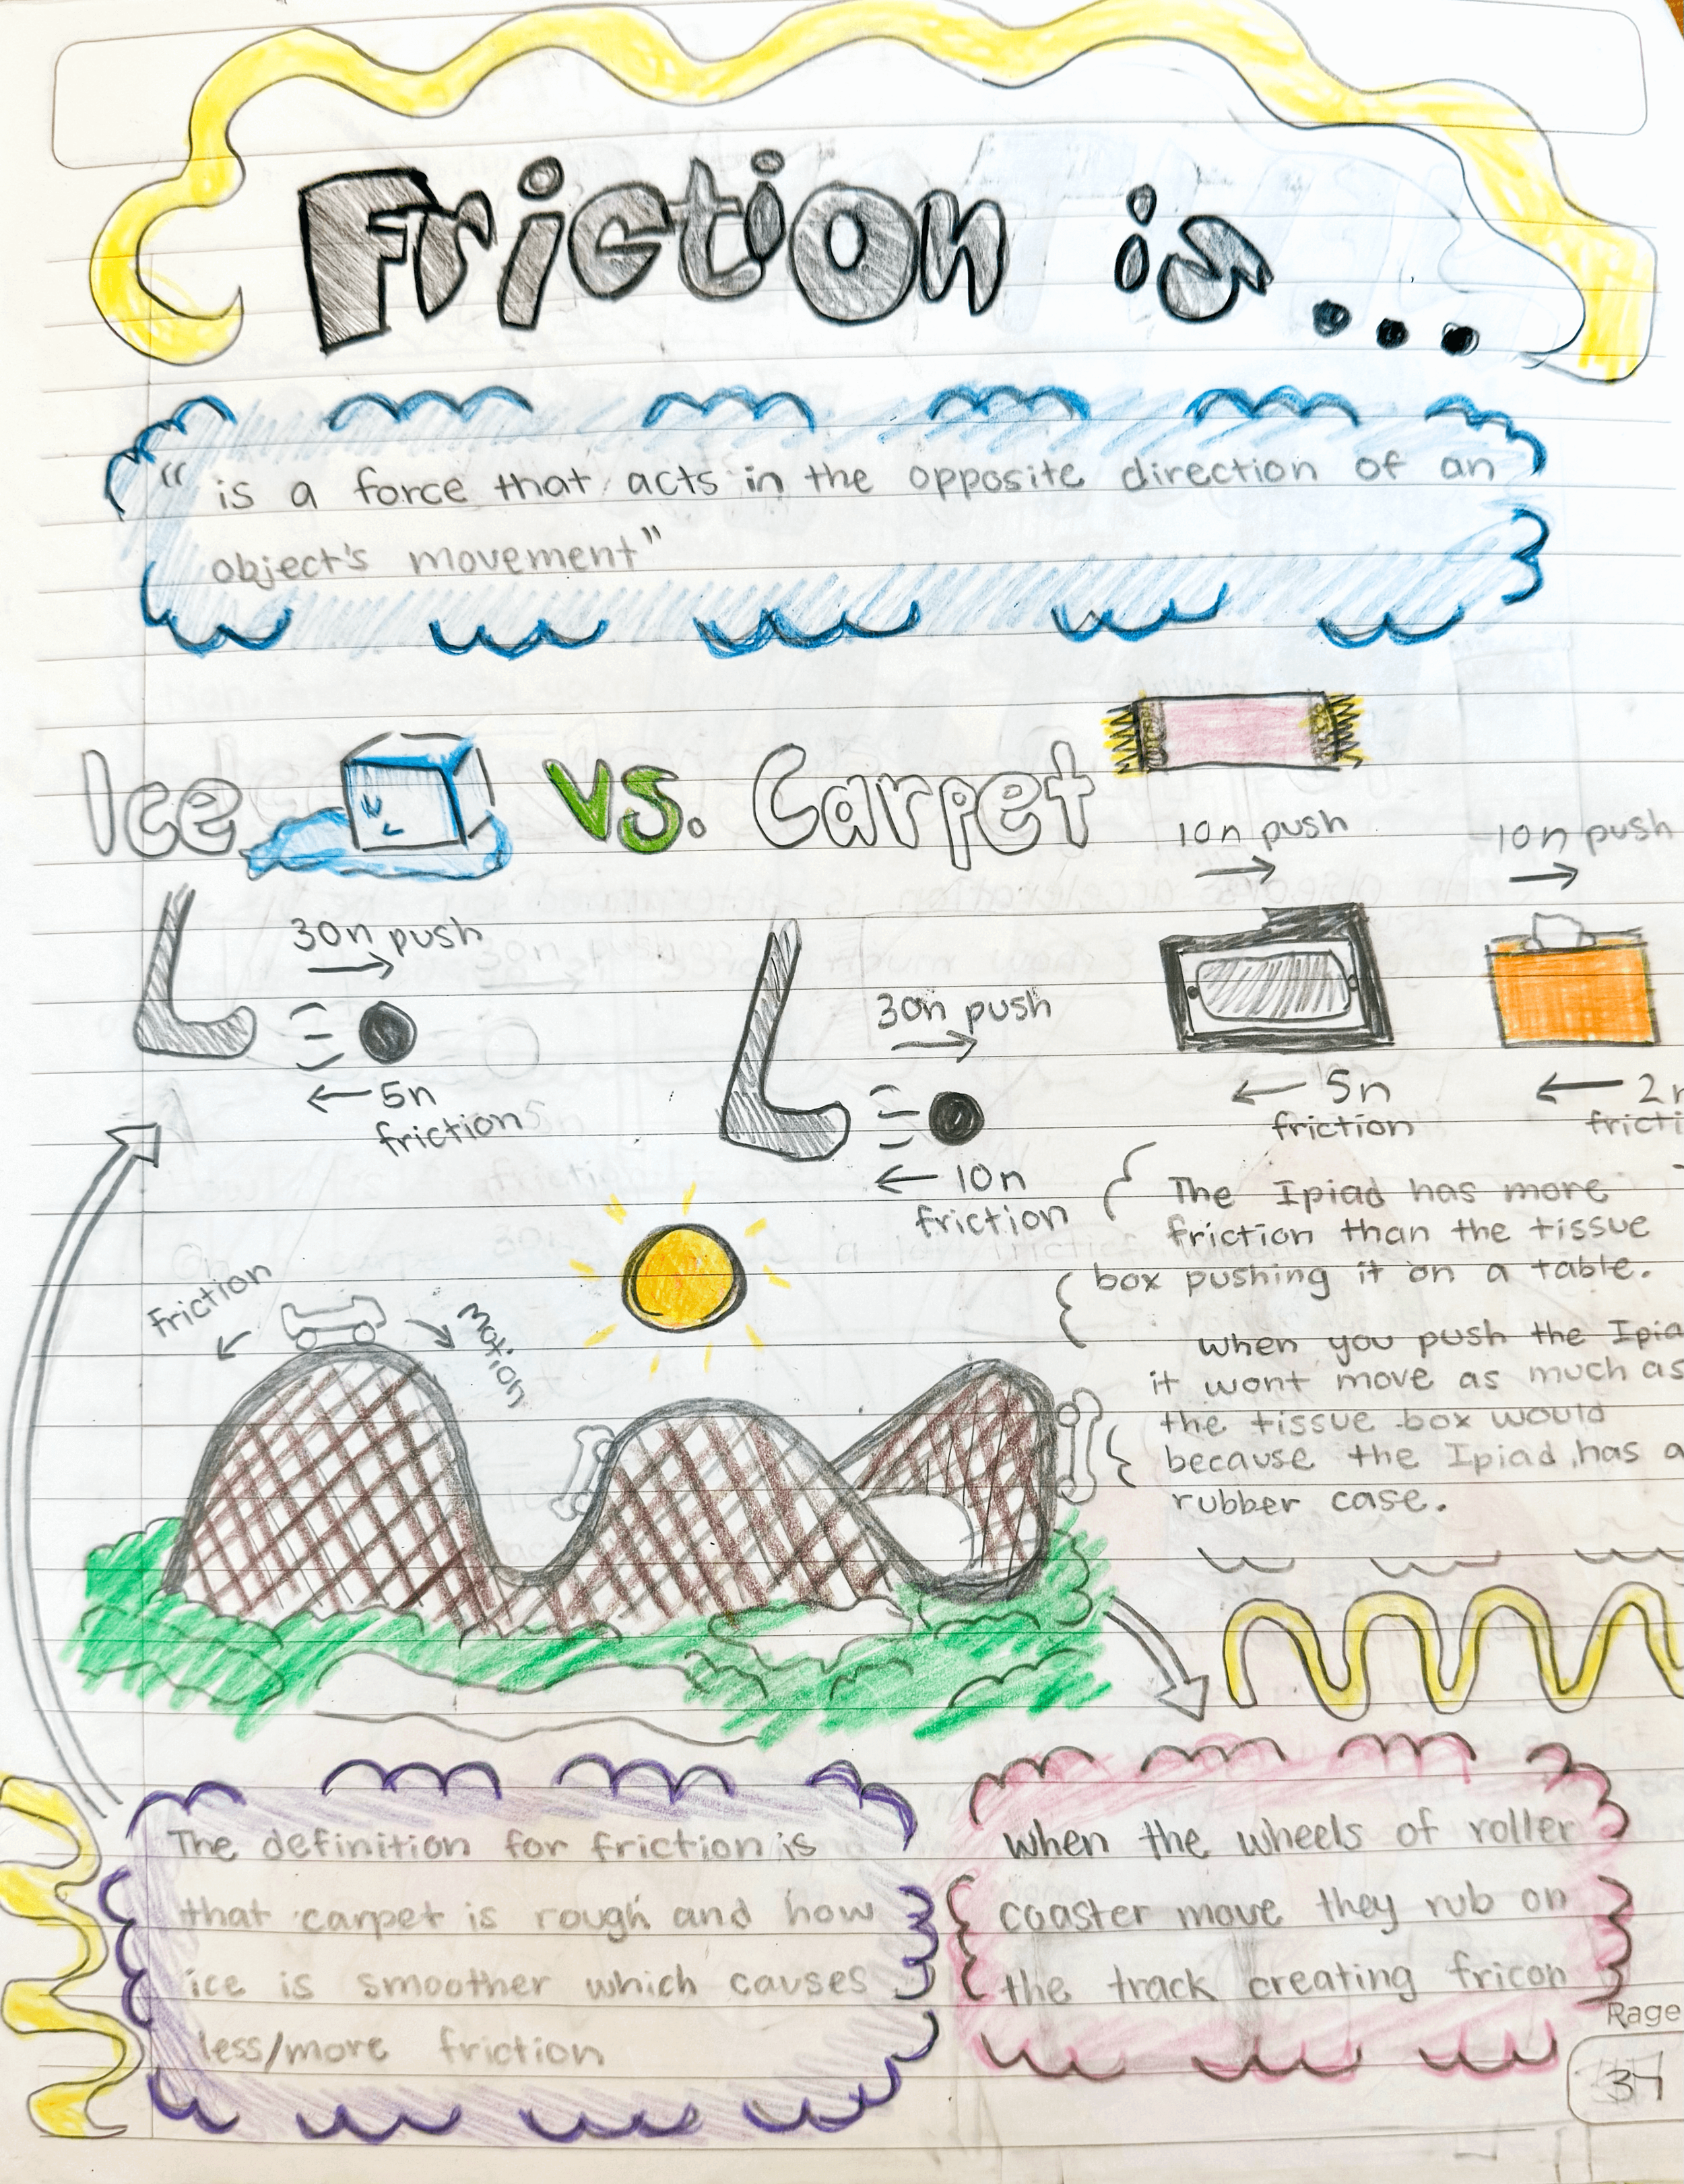 Friction is...
" is a force that acts in the opposite direction of an
object's movement"
Ice vs. Carpet
30n push
5n
friction
30n push
10n
friction
10n push
5n
friction
10n push
2n
fricti
The Ipiad has more
friction than the tissue
box pushing it on a table.
when you push the Ipia
it wont move as much as
the tissue box would
because the Ipiad has a
rubber case.
Friction
Motion
The definition for friction is
that carpet is rough and how
ice is smoother which causes
less/more friction
when the wheels of roller
coaster move they rub on
the track creating fricon
Page
34